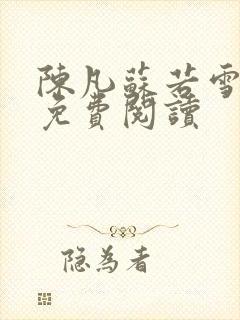 陳凡蘇若雪
免費閱讀
隐為者